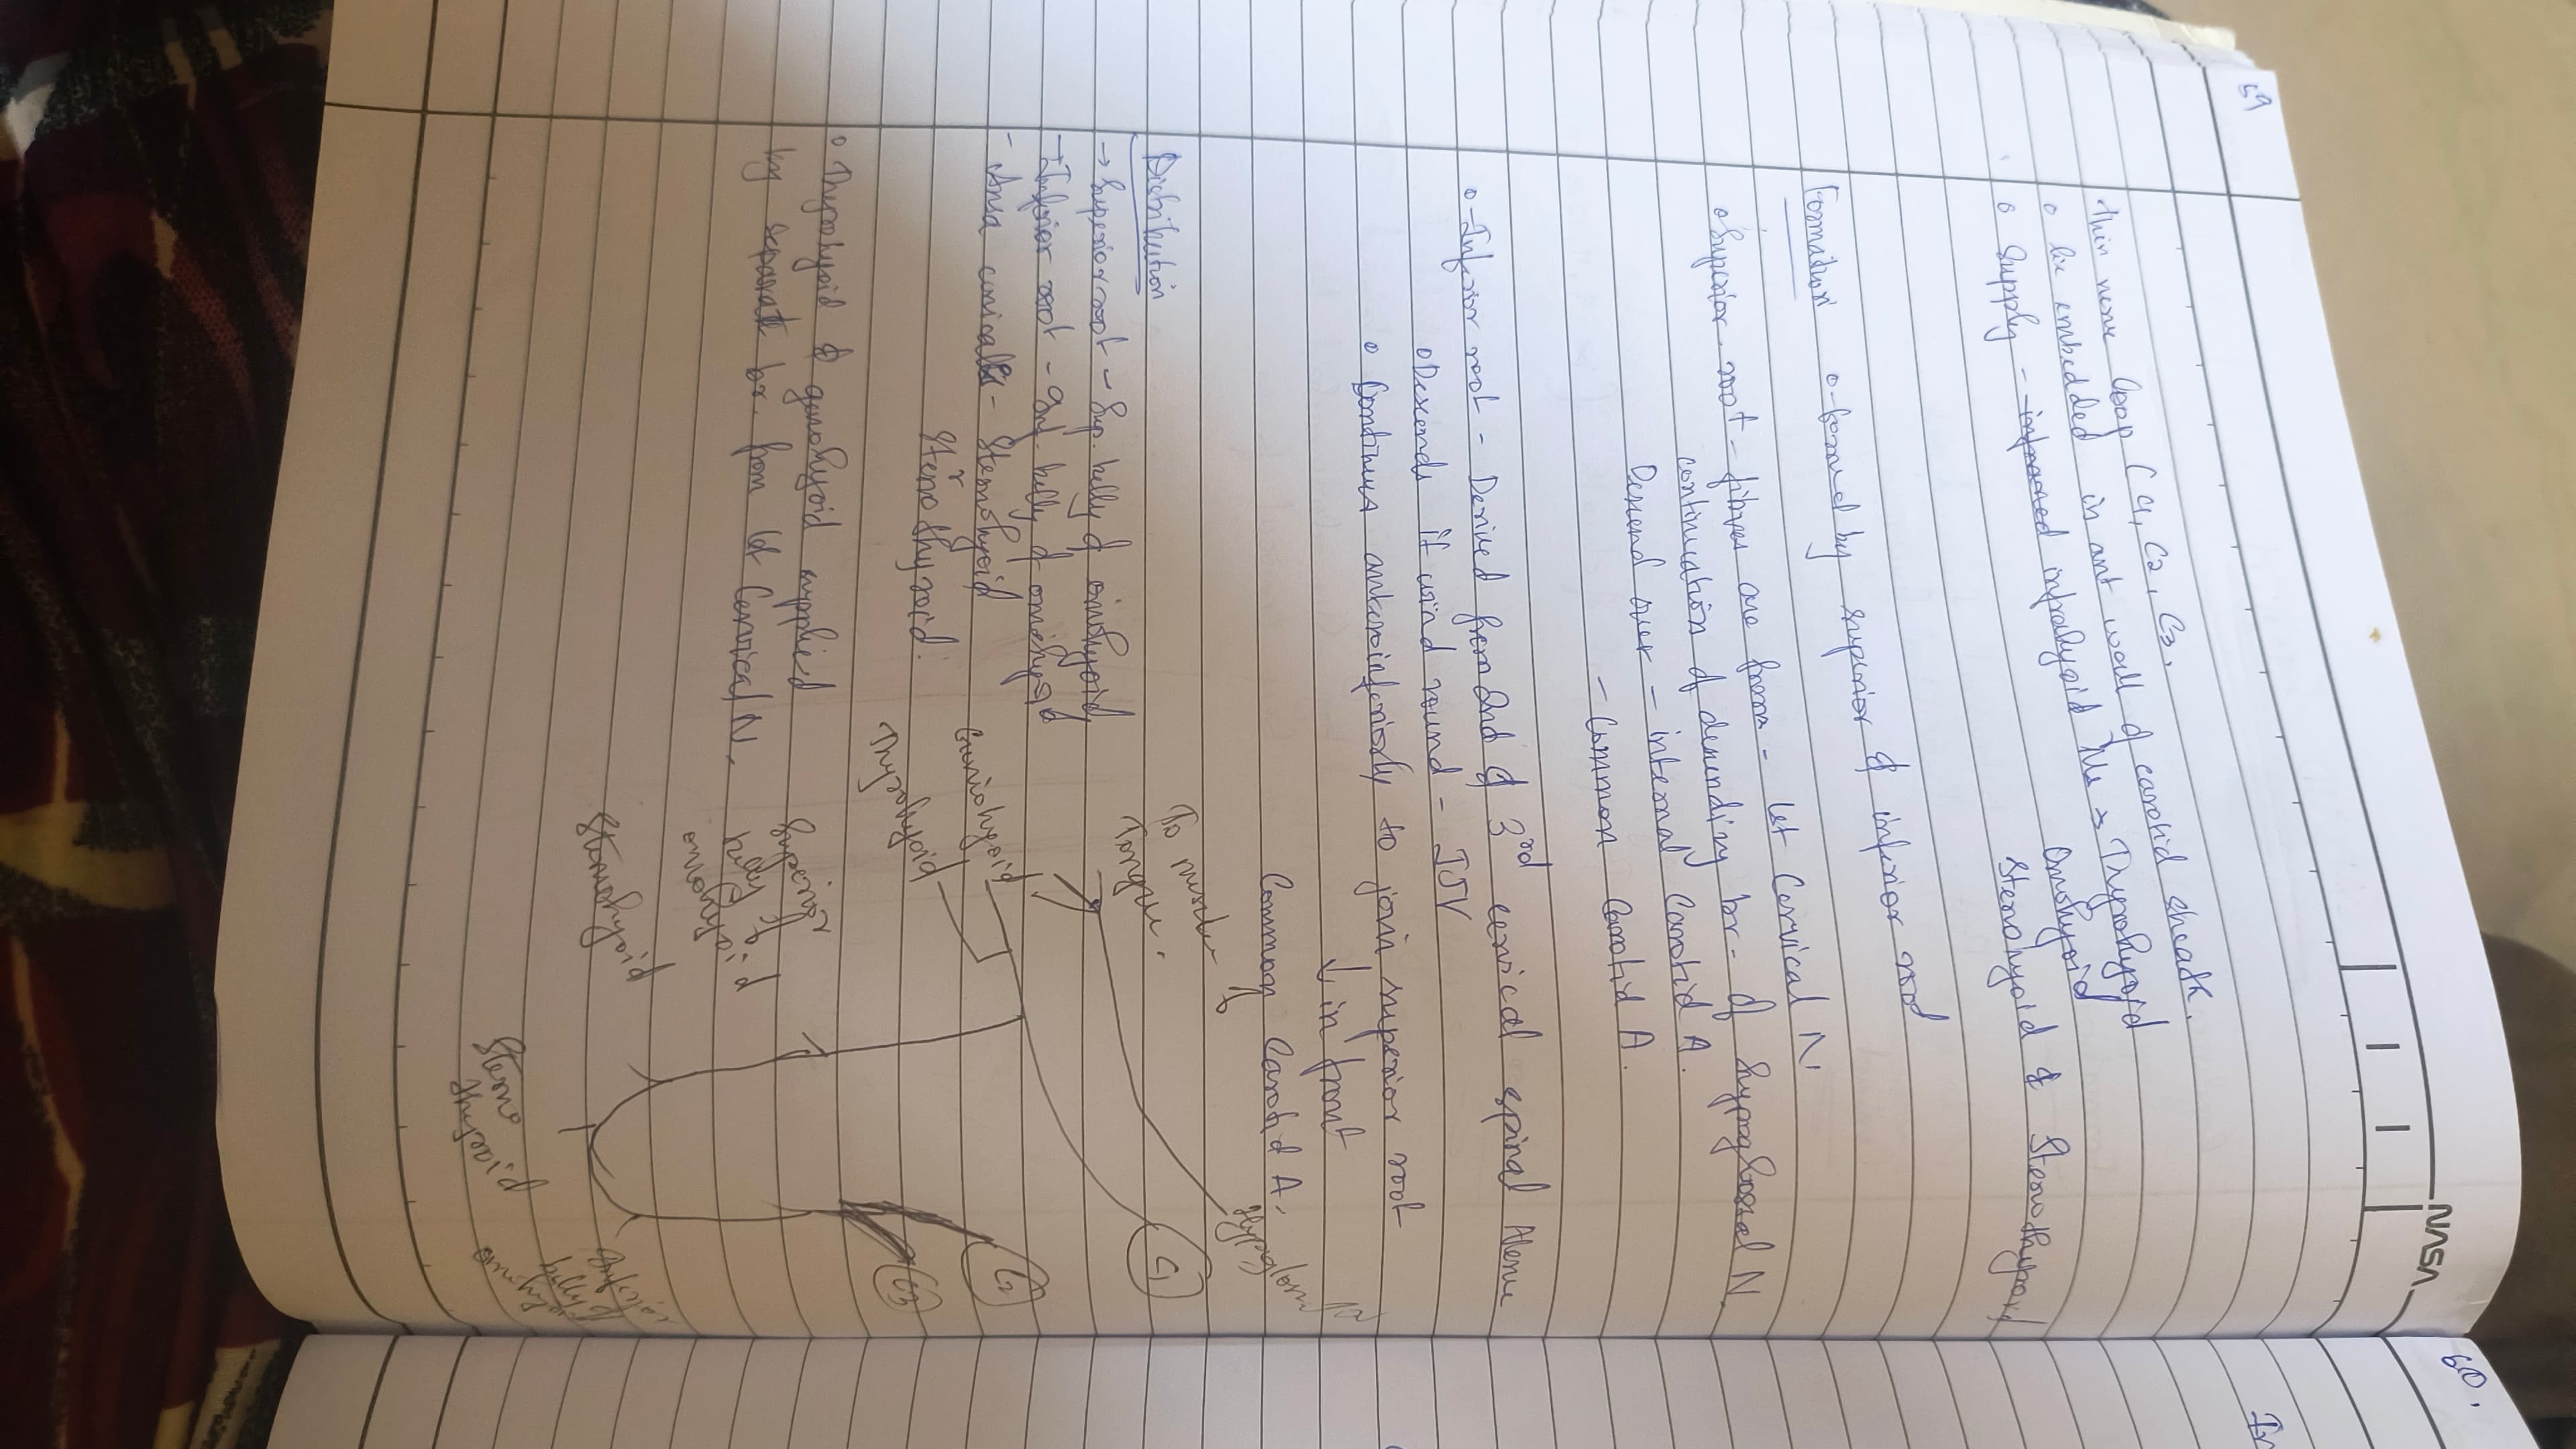 59
Thin nerve loop C C1, C2, C3.
o lie embedded in ant wall of carotid sheath.
o Supply - infrahyoid Ms → Thyrohyoid
Omohyoid
Sternohyoid & Sternothyroid
Formation o formed by superior & inferior root
o Superior root - fibres are from - 1st Cervical N.
continuation of descending br. of hypoglossal N.
Descend over - internal Carotid A.
- Common Carotid A.
o Inferior root - Derived from 2nd & 3rd cervical spinal Nerve
o Descends it wind round - IJV
o Continues anteroinferiorly to join superior root
↓ in front
Common Carotid A.
Distribution
→ Superior root - Sup. belly of omohyoid
→ Inferior root - Inf. belly of omohyoid
- Ansa cervicalis - Sternohyoid
Sternothyroid.
o Thyrohyoid & geniohyoid supplied
by separate br. from 1st Cervical N.
Hypoglossal N
To muscle of
Tongue.
C1
Geniohyoid
Thyrohyoid
C2
C3
Superior
belly of
omohyoid
Sternohyoid
Inferior
belly of
omohyoid
Sterno
thyroid
NASA
60.